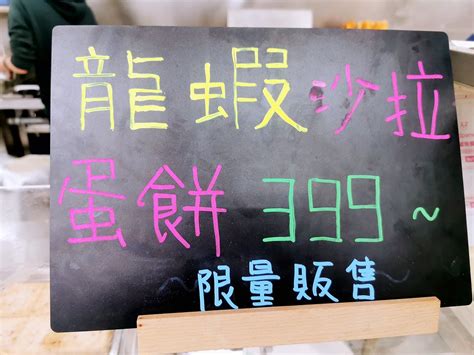 龍蝦沙拉
蛋餅 399~
限量販售